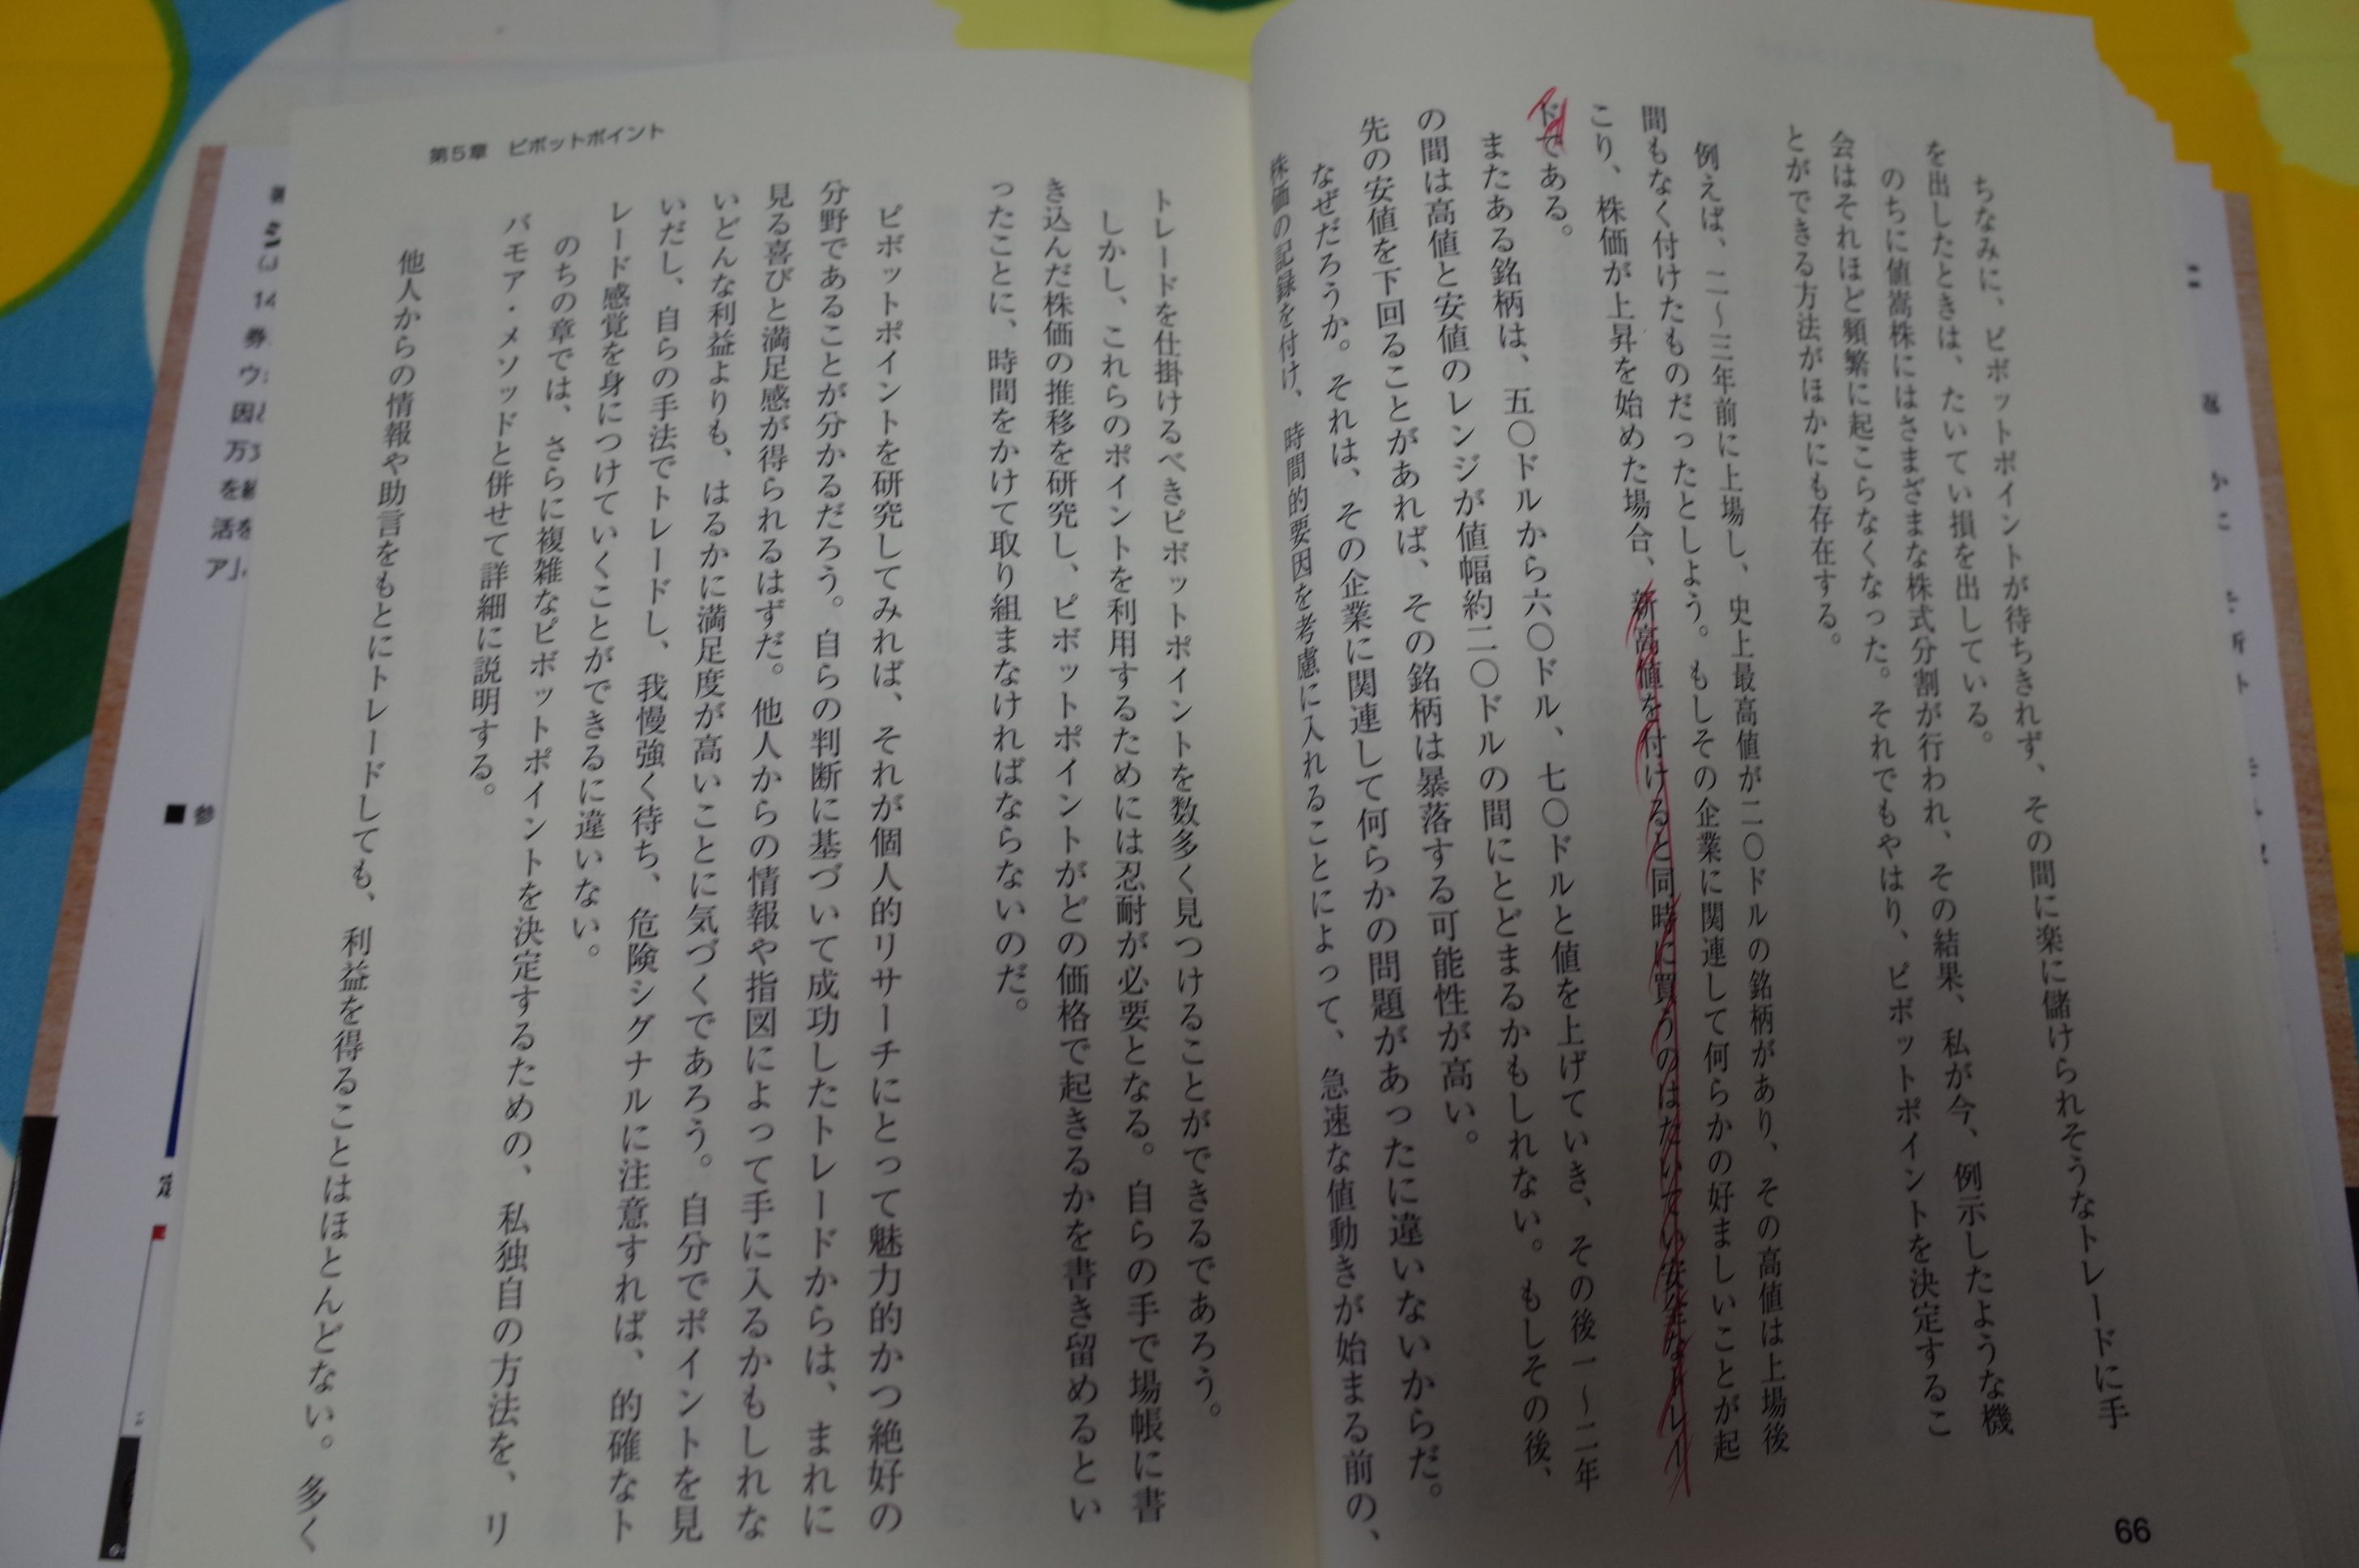 ちなみに、ピボットポイントが待ちきれず、その間に楽に儲けられそうなトレードに手
を出したときは、たいてい損を出している。
のちに値嵩株にはさまざまな株式分割が行われ、その結果、私が今、例示したような機
会はそれほど頻繁に起こらなくなった。それでもやはり、ピボットポイントを決定するこ
とができる方法がほかにも存在する。
例えば、二〜三年前に上場し、史上最高値が二〇ドルの銘柄があり、その高値は上場後
間もなく付けたものだったとしよう。もしその企業に関連して何らかの好ましいことが起
こり、株価が上昇を始めた場合、新高値を付けると同時に買うのはたいてい安全なトレー
ドである。
またある銘柄は、五〇ドルから六〇ドル、七〇ドルと値を上げていき、その後一〜二年
の間は高値と安値のレンジが値幅約二〇ドルの間にとどまるかもしれない。もしその後、
先の安値を下回ることがあれば、その銘柄は暴落する可能性が高い。
なぜだろうか。それは、その企業に関連して何らかの問題があったに違いないからだ。
株価の記録を付け、時間的要因を考慮に入れることによって、急速な値動きが始まる前の、
66
第5章 ピボットポイント
トレードを仕掛けるべきピボットポイントを数多く見つけることができるであろう。
しかし、これらのポイントを利用するためには忍耐が必要となる。自らの手で場帳に書
き込んだ株価の推移を研究し、ピボットポイントがどの価格で起きるかを書き留めるとい
ったことに、時間をかけて取り組まなければならないのだ。
ピボットポイントを研究してみれば、それが個人的リサーチにとって魅力的かつ絶好の
分野であることが分かるだろう。自らの判断に基づいて成功したトレードからは、まれに
見る喜びと満足感が得られるはずだ。他人からの情報や指図によって手に入るかもしれな
いどんな利益よりも、はるかに満足度が高いことに気づくであろう。自分でポイントを見
いだし、自らの手法でトレードし、我慢強く待ち、危険シグナルに注意すれば、的確なト
レード感覚を身につけていくことができるに違いない。
のちの章では、さらに複雑なピボットポイントを決定するための、私独自の方法を、リ
バモア・メソッドと併せて詳細に説明する。
他人からの情報や助言をもとにトレードしても、利益を得ることはほとんどない。多く